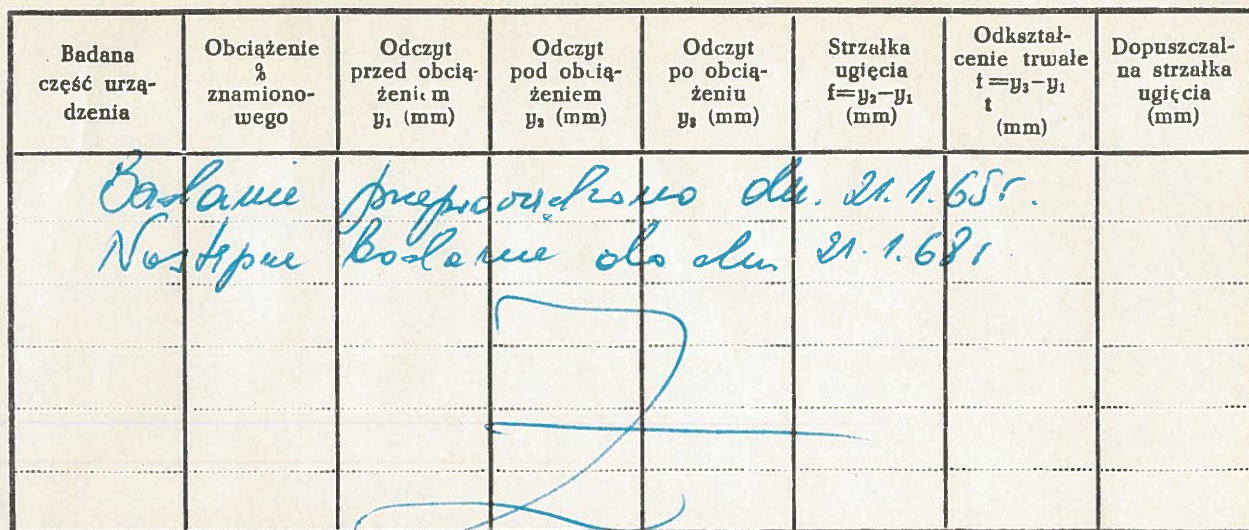 Badana część urzą-dzenia
Obciążenie % znamiono-wego
Odczyt przed obcią-żeniem y₁ (mm)
Odczyt pod obcią-żeniem y₂ (mm)
Odczyt po obcią-żeniu y₃ (mm)
Strzałka ugięcia f=y₂-y₁ (mm)
Odkształ-cenie trwałe f =y₃-y₁ t (mm)
Dopuszczal-na strzałka ugięcia (mm)
Badanie przeprowadzono dn. 21.1.65r.
Następne badanie do dn. 21.1.68r